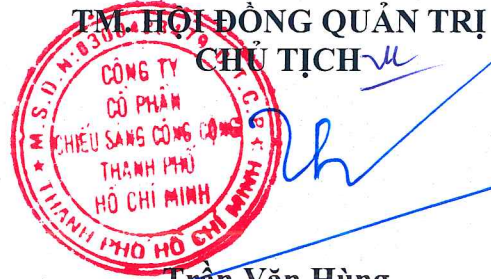 TM. HỘI ĐỒNG QUẢN TRỊ
CHỦ TỊCH
CÔNG TY
CỔ PHẦN
CHIẾU SÁNG CÔNG CỘNG
THÀNH PHỐ
HỒ CHÍ MINH
THÀNH PHỐ HỒ CHÍ MINH
Trần Văn Hùng